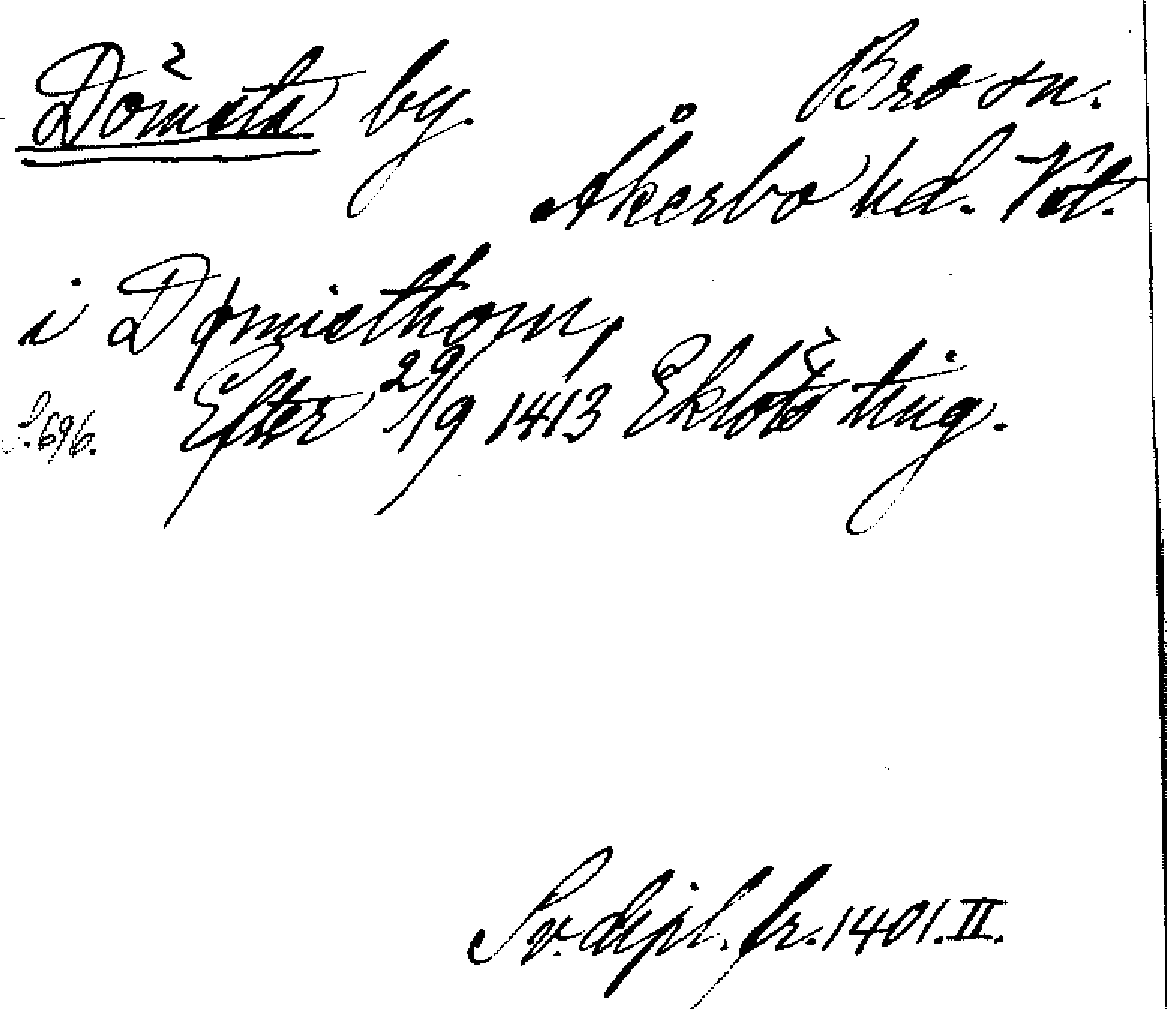 Dömsta by. Bro sn.
Åkerbo hd. Vstl.
i Dømisthom,
S. 696. Efter 29/9 1413 Eklöts ting.
Sv. dipl. fr. 1401. II.